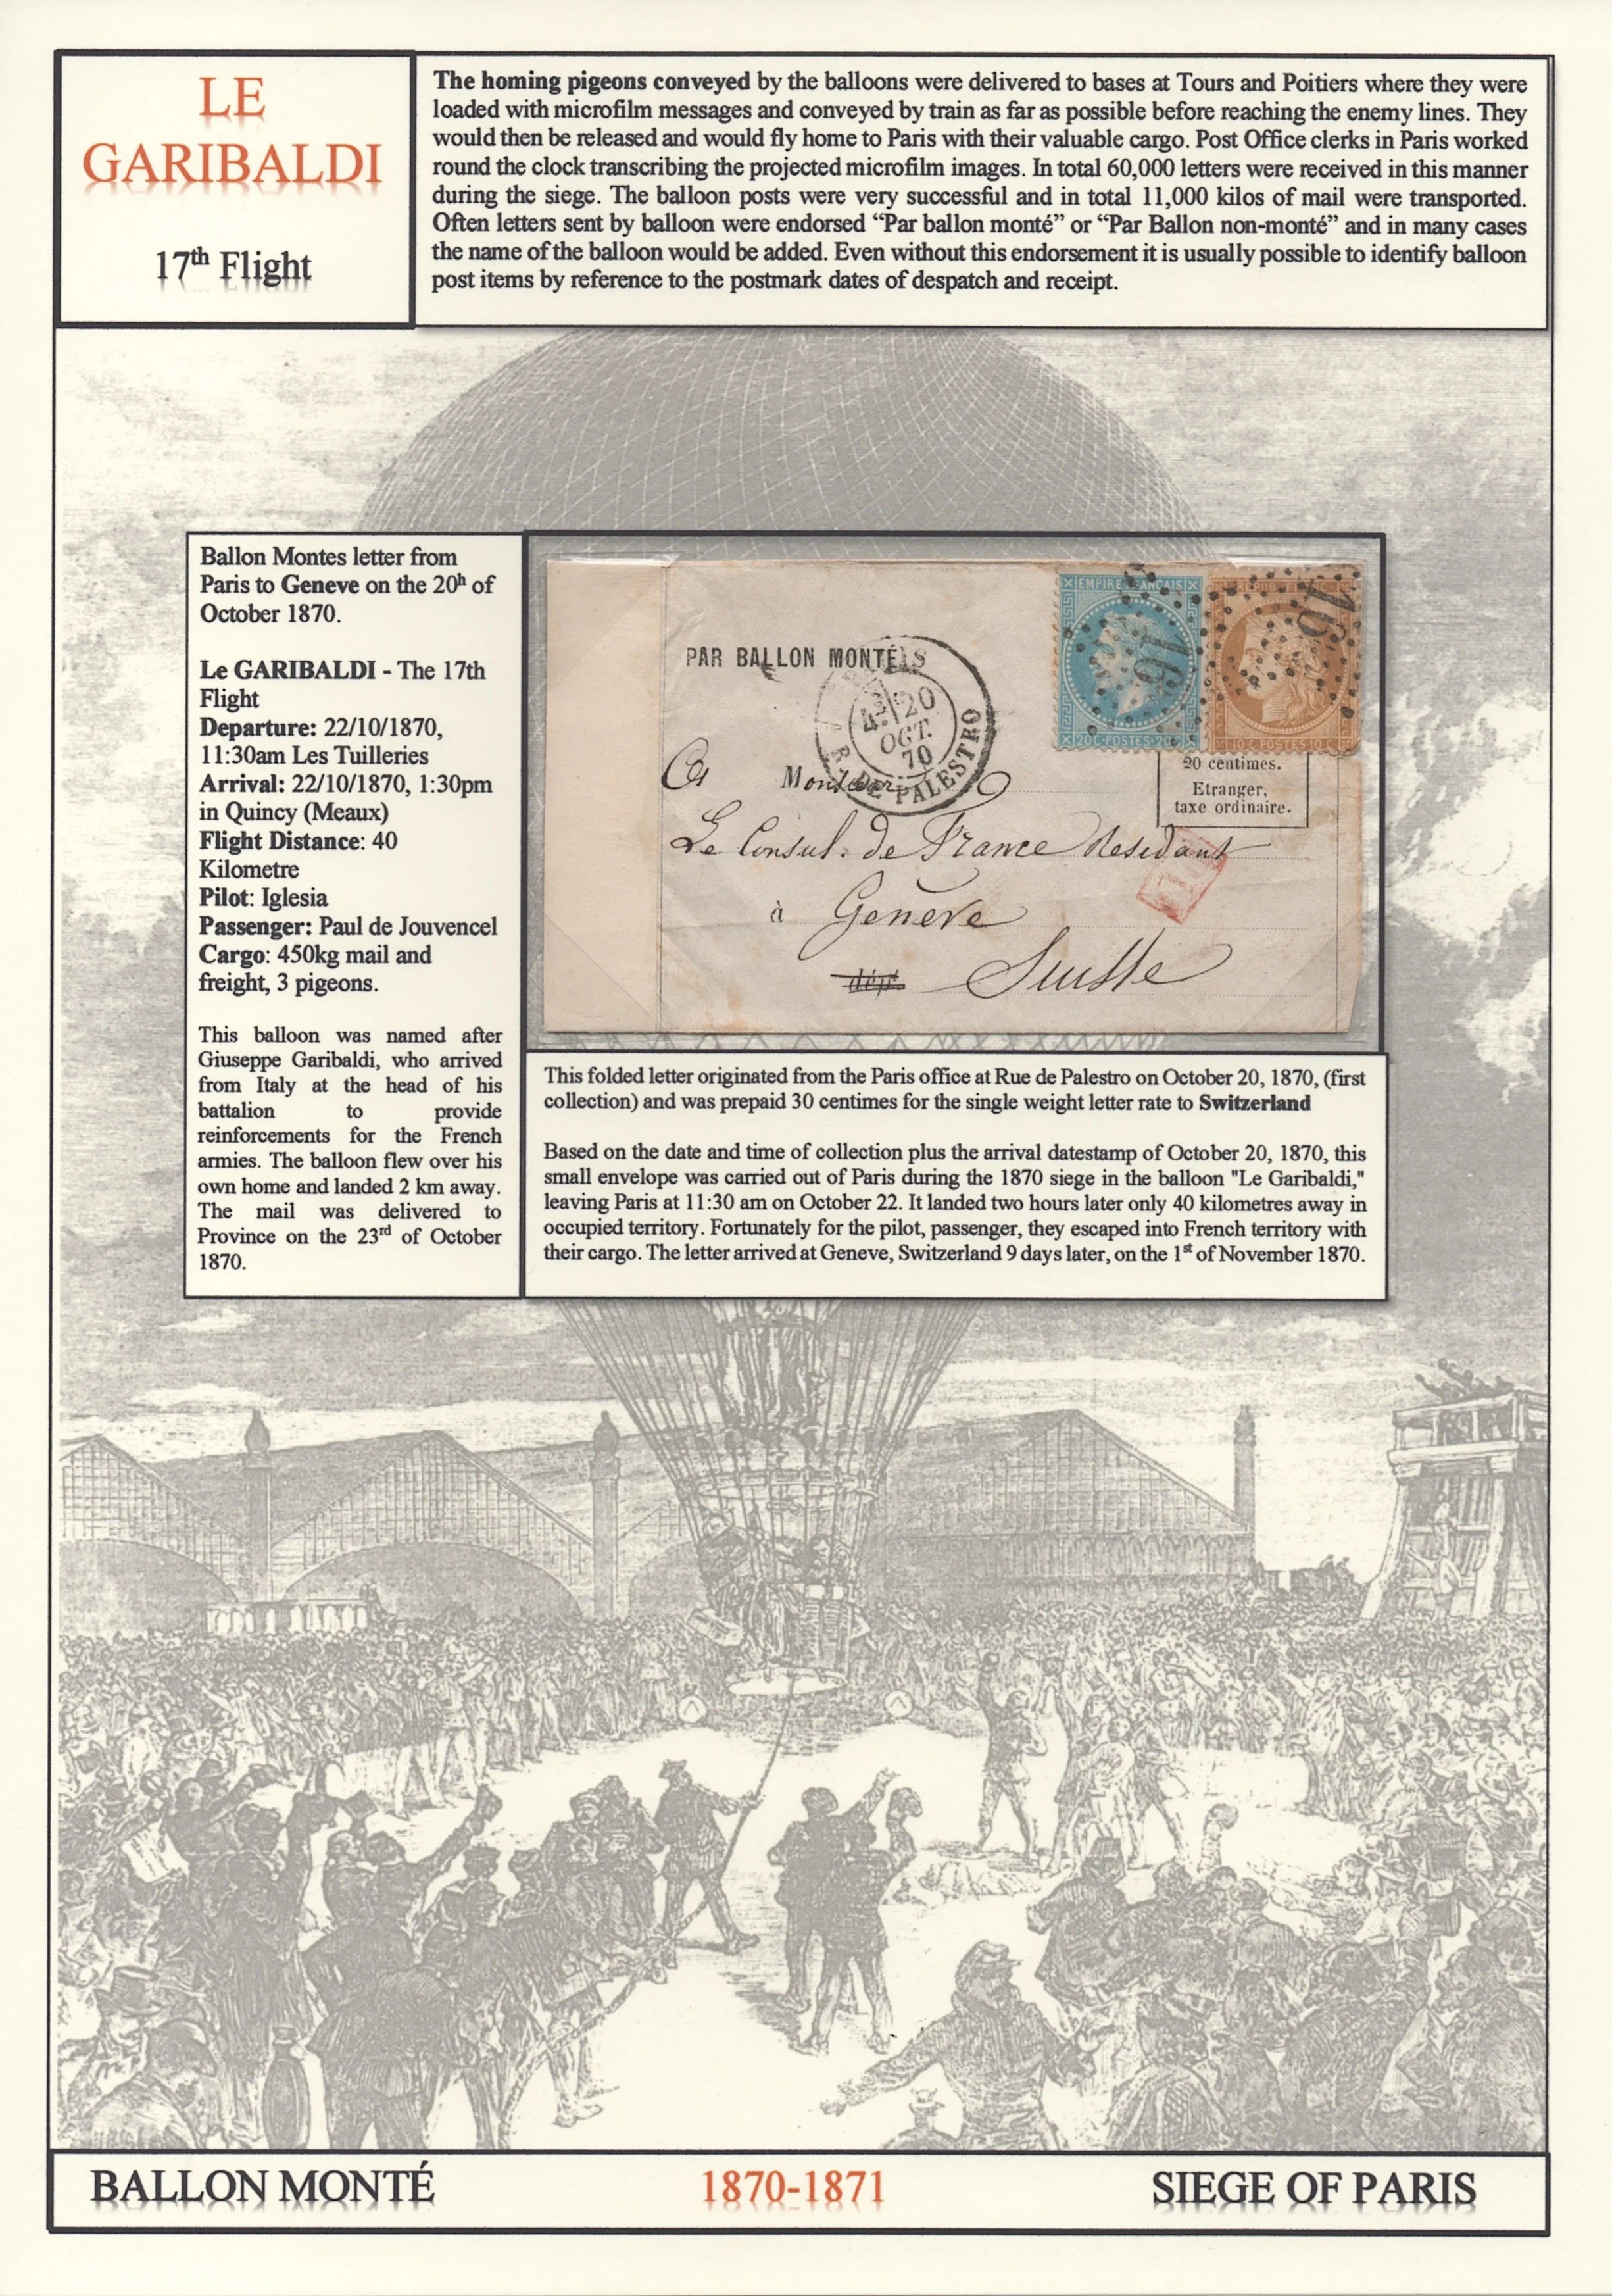 LE
GARIBALDI
17th Flight
The homing pigeons conveyed by the balloons were delivered to bases at Tours and Poitiers where they were
loaded with microfilm messages and conveyed by train as far as possible before reaching the enemy lines. They
would then be released and would fly home to Paris with their valuable cargo. Post Office clerks in Paris worked
round the clock transcribing the projected microfilm images. In total 60,000 letters were received in this manner
during the siege. The balloon posts were very successful and in total 11,000 kilos of mail were transported.
Often letters sent by balloon were endorsed “Par ballon monté” or “Par Ballon non-monté” and in many cases
the name of the balloon would be added. Even without this endorsement it is usually possible to identify balloon
post items by reference to the postmark dates of despatch and receipt.
Ballon Montes letter from
Paris to Geneve on the 20h of
October 1870.
Le GARIBALDI - The 17th
Flight
Departure: 22/10/1870,
11:30am Les Tuilleries
Arrival: 22/10/1870, 1:30pm
in Quincy (Meaux)
Flight Distance: 40
Kilometre
Pilot: Iglesia
Passenger: Paul de Jouvencel
Cargo: 450kg mail and
freight, 3 pigeons.
This balloon was named after
Giuseppe Garibaldi, who arrived
from Italy at the head of his
battalion to provide
reinforcements for the French
armies. The balloon flew over his
own home and landed 2 km away.
The mail was delivered to
Province on the 23rd of October
1870.
PAR BALLON MONTÉ
20
OCT.
70
R. DE PALESTRO
EMPIRE FRANÇAIS
20 C POSTES 20 C
10 C POSTES 10 C
16
16
20 centimes.
Etranger,
taxe ordinaire.
A Monsieur
Le Consul de France Residant
à Genève
dép. Suisse
This folded letter originated from the Paris office at Rue de Palestro on October 20, 1870, (first
collection) and was prepaid 30 centimes for the single weight letter rate to Switzerland
Based on the date and time of collection plus the arrival datestamp of October 20, 1870, this
small envelope was carried out of Paris during the 1870 siege in the balloon "Le Garibaldi,"
leaving Paris at 11:30 am on October 22. It landed two hours later only 40 kilometres away in
occupied territory. Fortunately for the pilot, passenger, they escaped into French territory with
their cargo. The letter arrived at Geneve, Switzerland 9 days later, on the 1st of November 1870.
BALLON MONTÉ
1870-1871
SIEGE OF PARIS